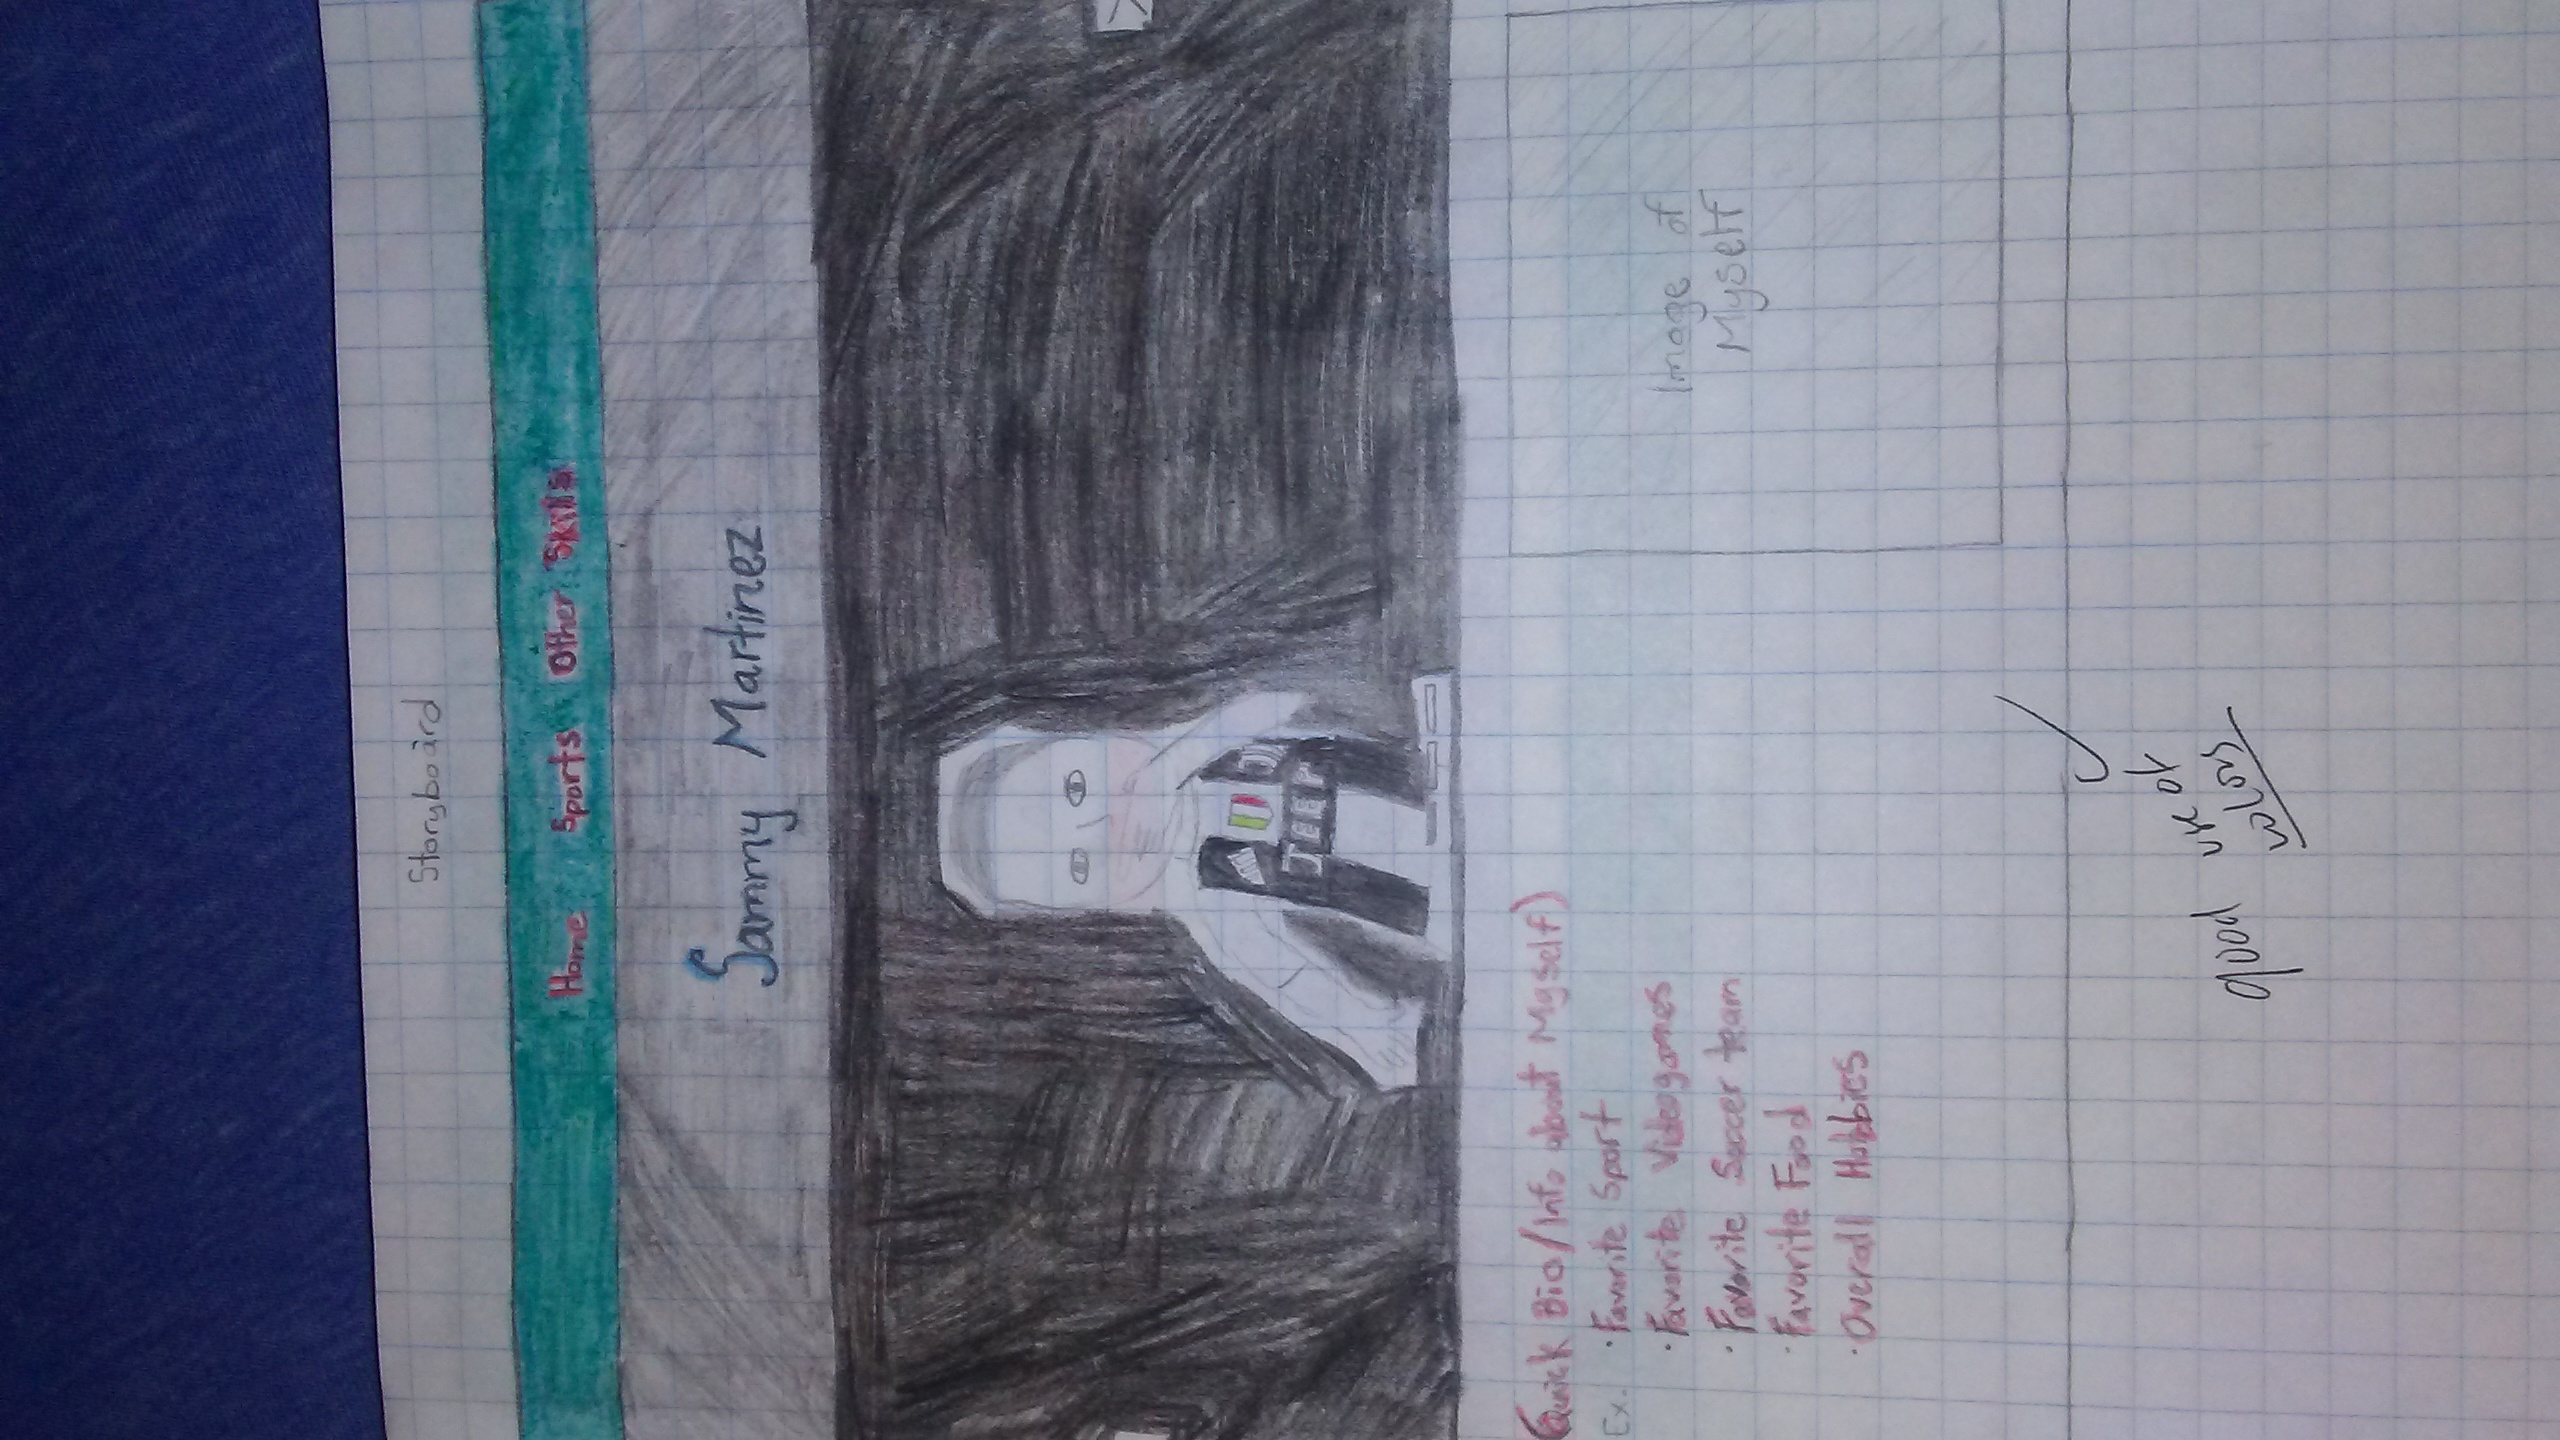 Storyboard
Home Sports Other Skills
Sammy Martinez
JEEP
(Quick Bio/Info about Myself)
Ex. · Favorite Sport
· Favorite Videogames
· Favorite Soccer team
· Favorite Food
· Overall Hobbies
Image of
Myself
good use of
colors